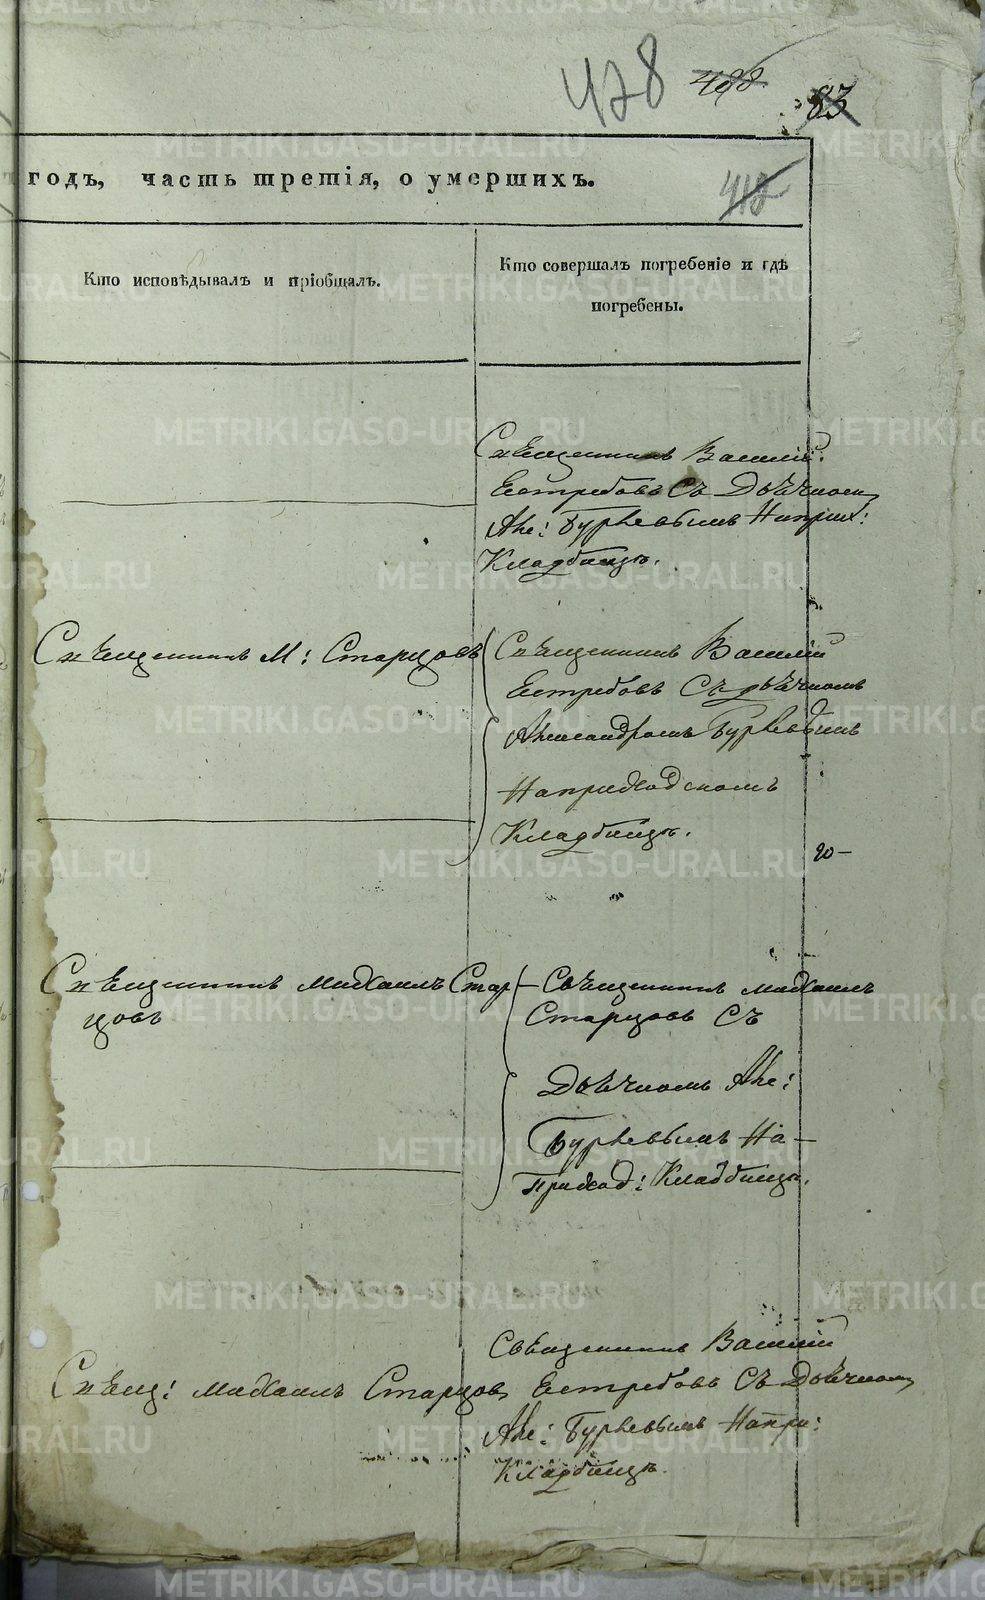 478 498 83
годъ, часть третія, о умершихъ.
412
Кто исповѣдывалъ и пріобщалъ.
Кто совершалъ погребеніе и гдѣ
погребены.
Священникъ Василій
Естребовъ Съ Дьячкомъ
Але: Бурневымъ На прих:
Кладбищѣ.
Священникъ М: Старцовъ
Священникъ Василій
Естребовъ Съ дьячкомъ
Александромъ Бурневымъ
На приходскомъ
Кладбищѣ.
Священникъ Михаилъ Стар
цовъ
Священникъ Михаилъ
Старцовъ Съ
Дьячкомъ Але:
Бурневымъ На
приход: Кладбищѣ.
Свящ: Михаилъ Старцовъ
Священникъ Василій
Естребовъ Съ Дьячкомъ
Але: Бурневымъ На при:
Кладбищѣ.
METRIKI.GASO-URAL.RU